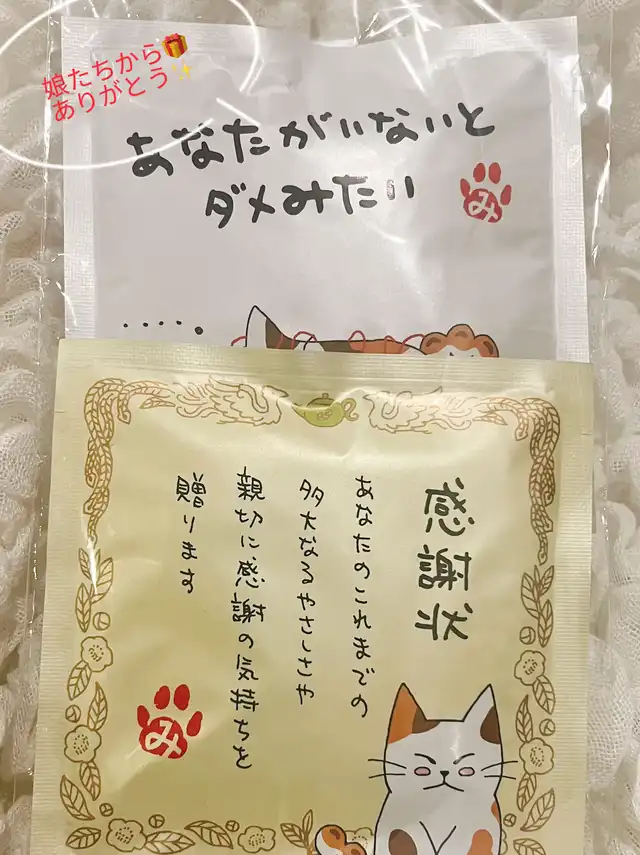 娘たちから🎁
ありがとう✨
あなたがいないと
ダメみたい
み
.....
感謝状
あなたのこれまでの
多大なるやさしさや
親切に感謝の気持ちを
贈ります
み